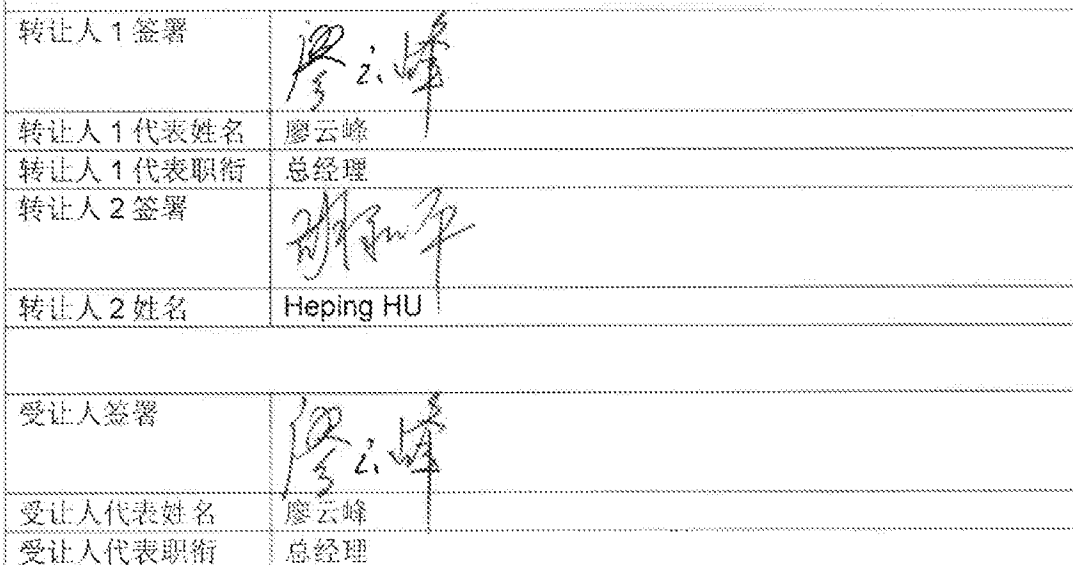 转让人 1 签署 廖云峰
转让人 1 代表姓名 廖云峰
转让人 1 代表职衔 总经理
转让人 2 签署 胡和平
转让人 2 姓名 Heping HU
受让人签署 廖云峰
受让人代表姓名 廖云峰
受让人代表职衔 总经理